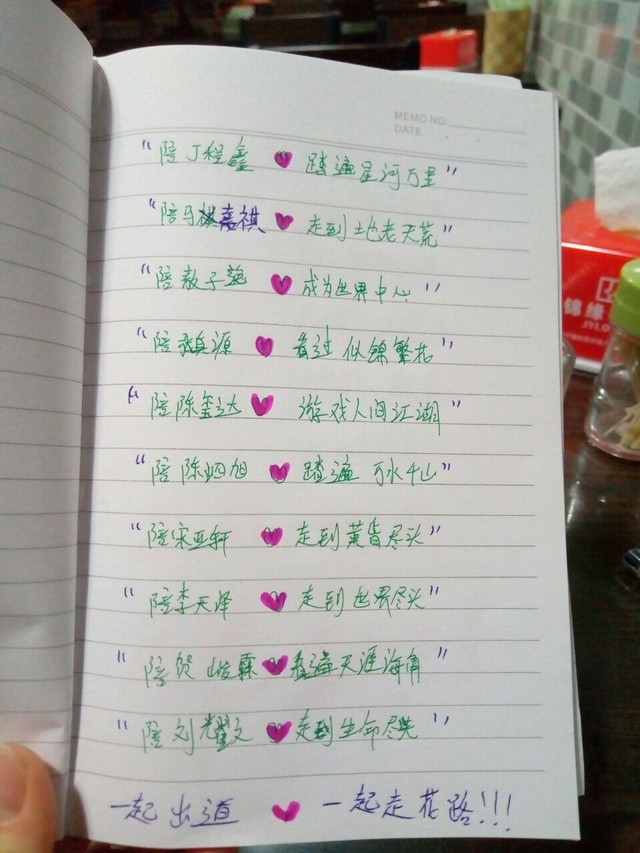 MEMO NO.
DATE
"陪丁程鑫 ♥ 踏遍星河万里"
"陪马祺嘉祺 ♥ 走到地老天荒"
"陪敖子逸 ♥ 成为世界中心"
"陪张真源 ♥ 看过似锦繁花"
"陪陈玺达 ♥ 游戏人间江湖"
"陪陈泗旭 ♥ 踏遍万水千山"
"陪宋亚轩 ♥ 走到黄昏尽头"
"陪李天泽 ♥ 走到世界尽头"
"陪贺峻霖 ♥ 看遍天涯海角"
"陪刘耀文 ♥ 走到生命尽头"
一起出道 ♥ 一起走花路!!!
锦缘
JYLO